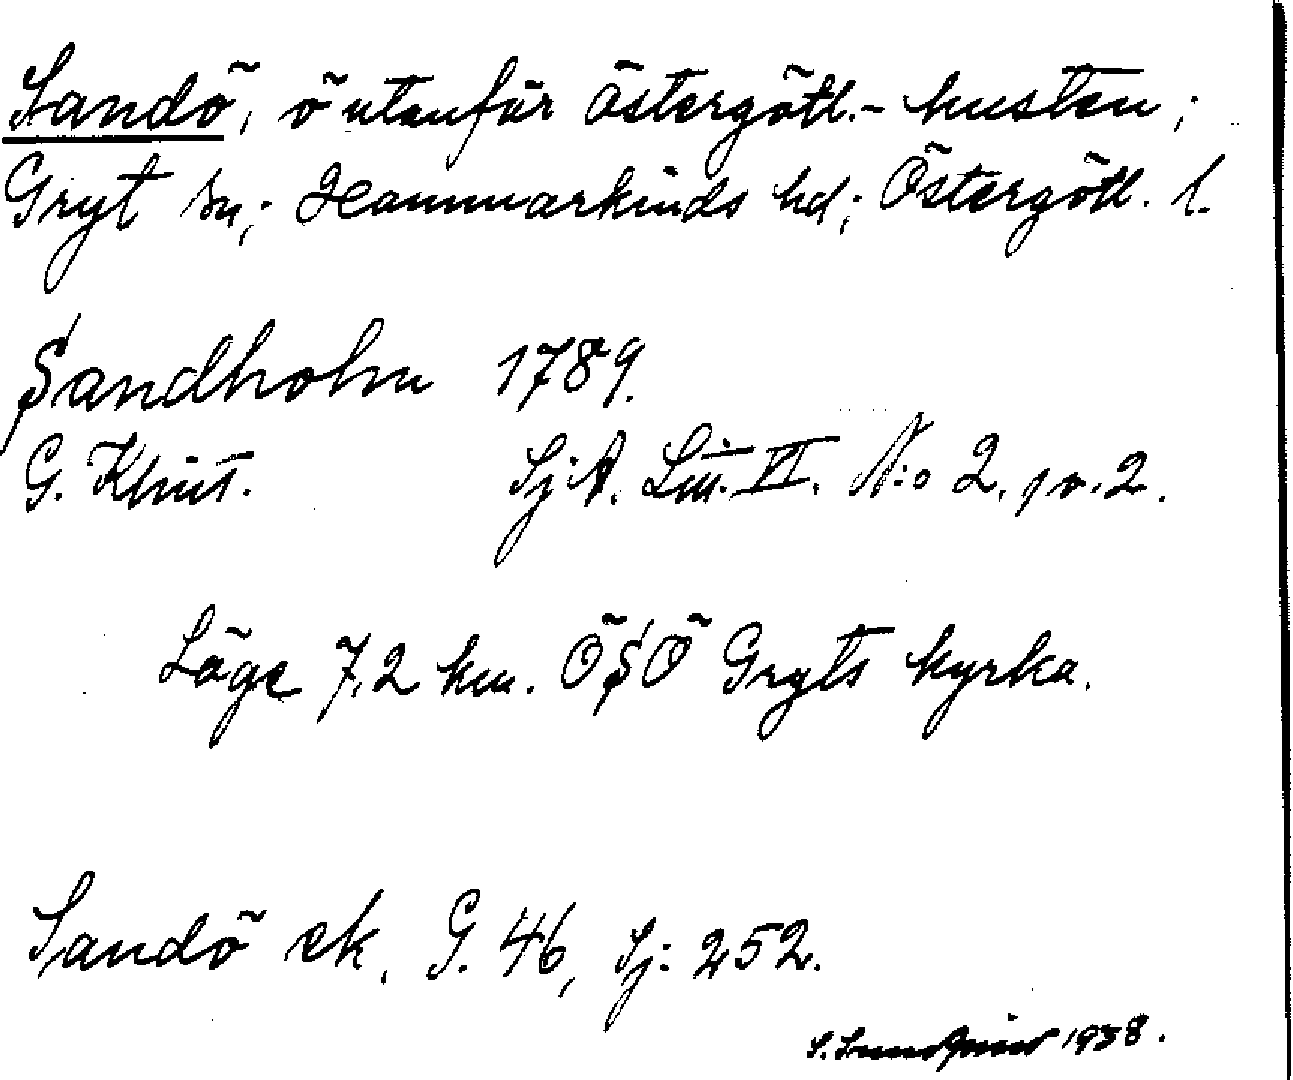 Sandö, ö utanför Östergötl.-kusten;
Gryt sn; Hammarkinds hd; Östergötl. l.
Sandholm 1789.
G. Klint. Sj:A. Litt. VI. N:o 2, pv. 2.
Läge 7,2 km. ÖSÖ Gryts kyrka.
Sandö ek. G. 46, Sj: 252.
S. Lundqvist 1938.